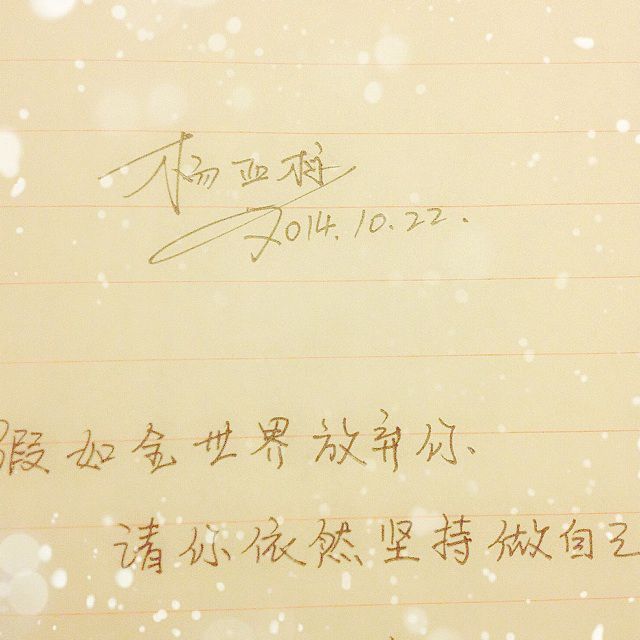 杨亚栋
2014.10.22.
假如全世界放弃你、
请你依然坚持做自己